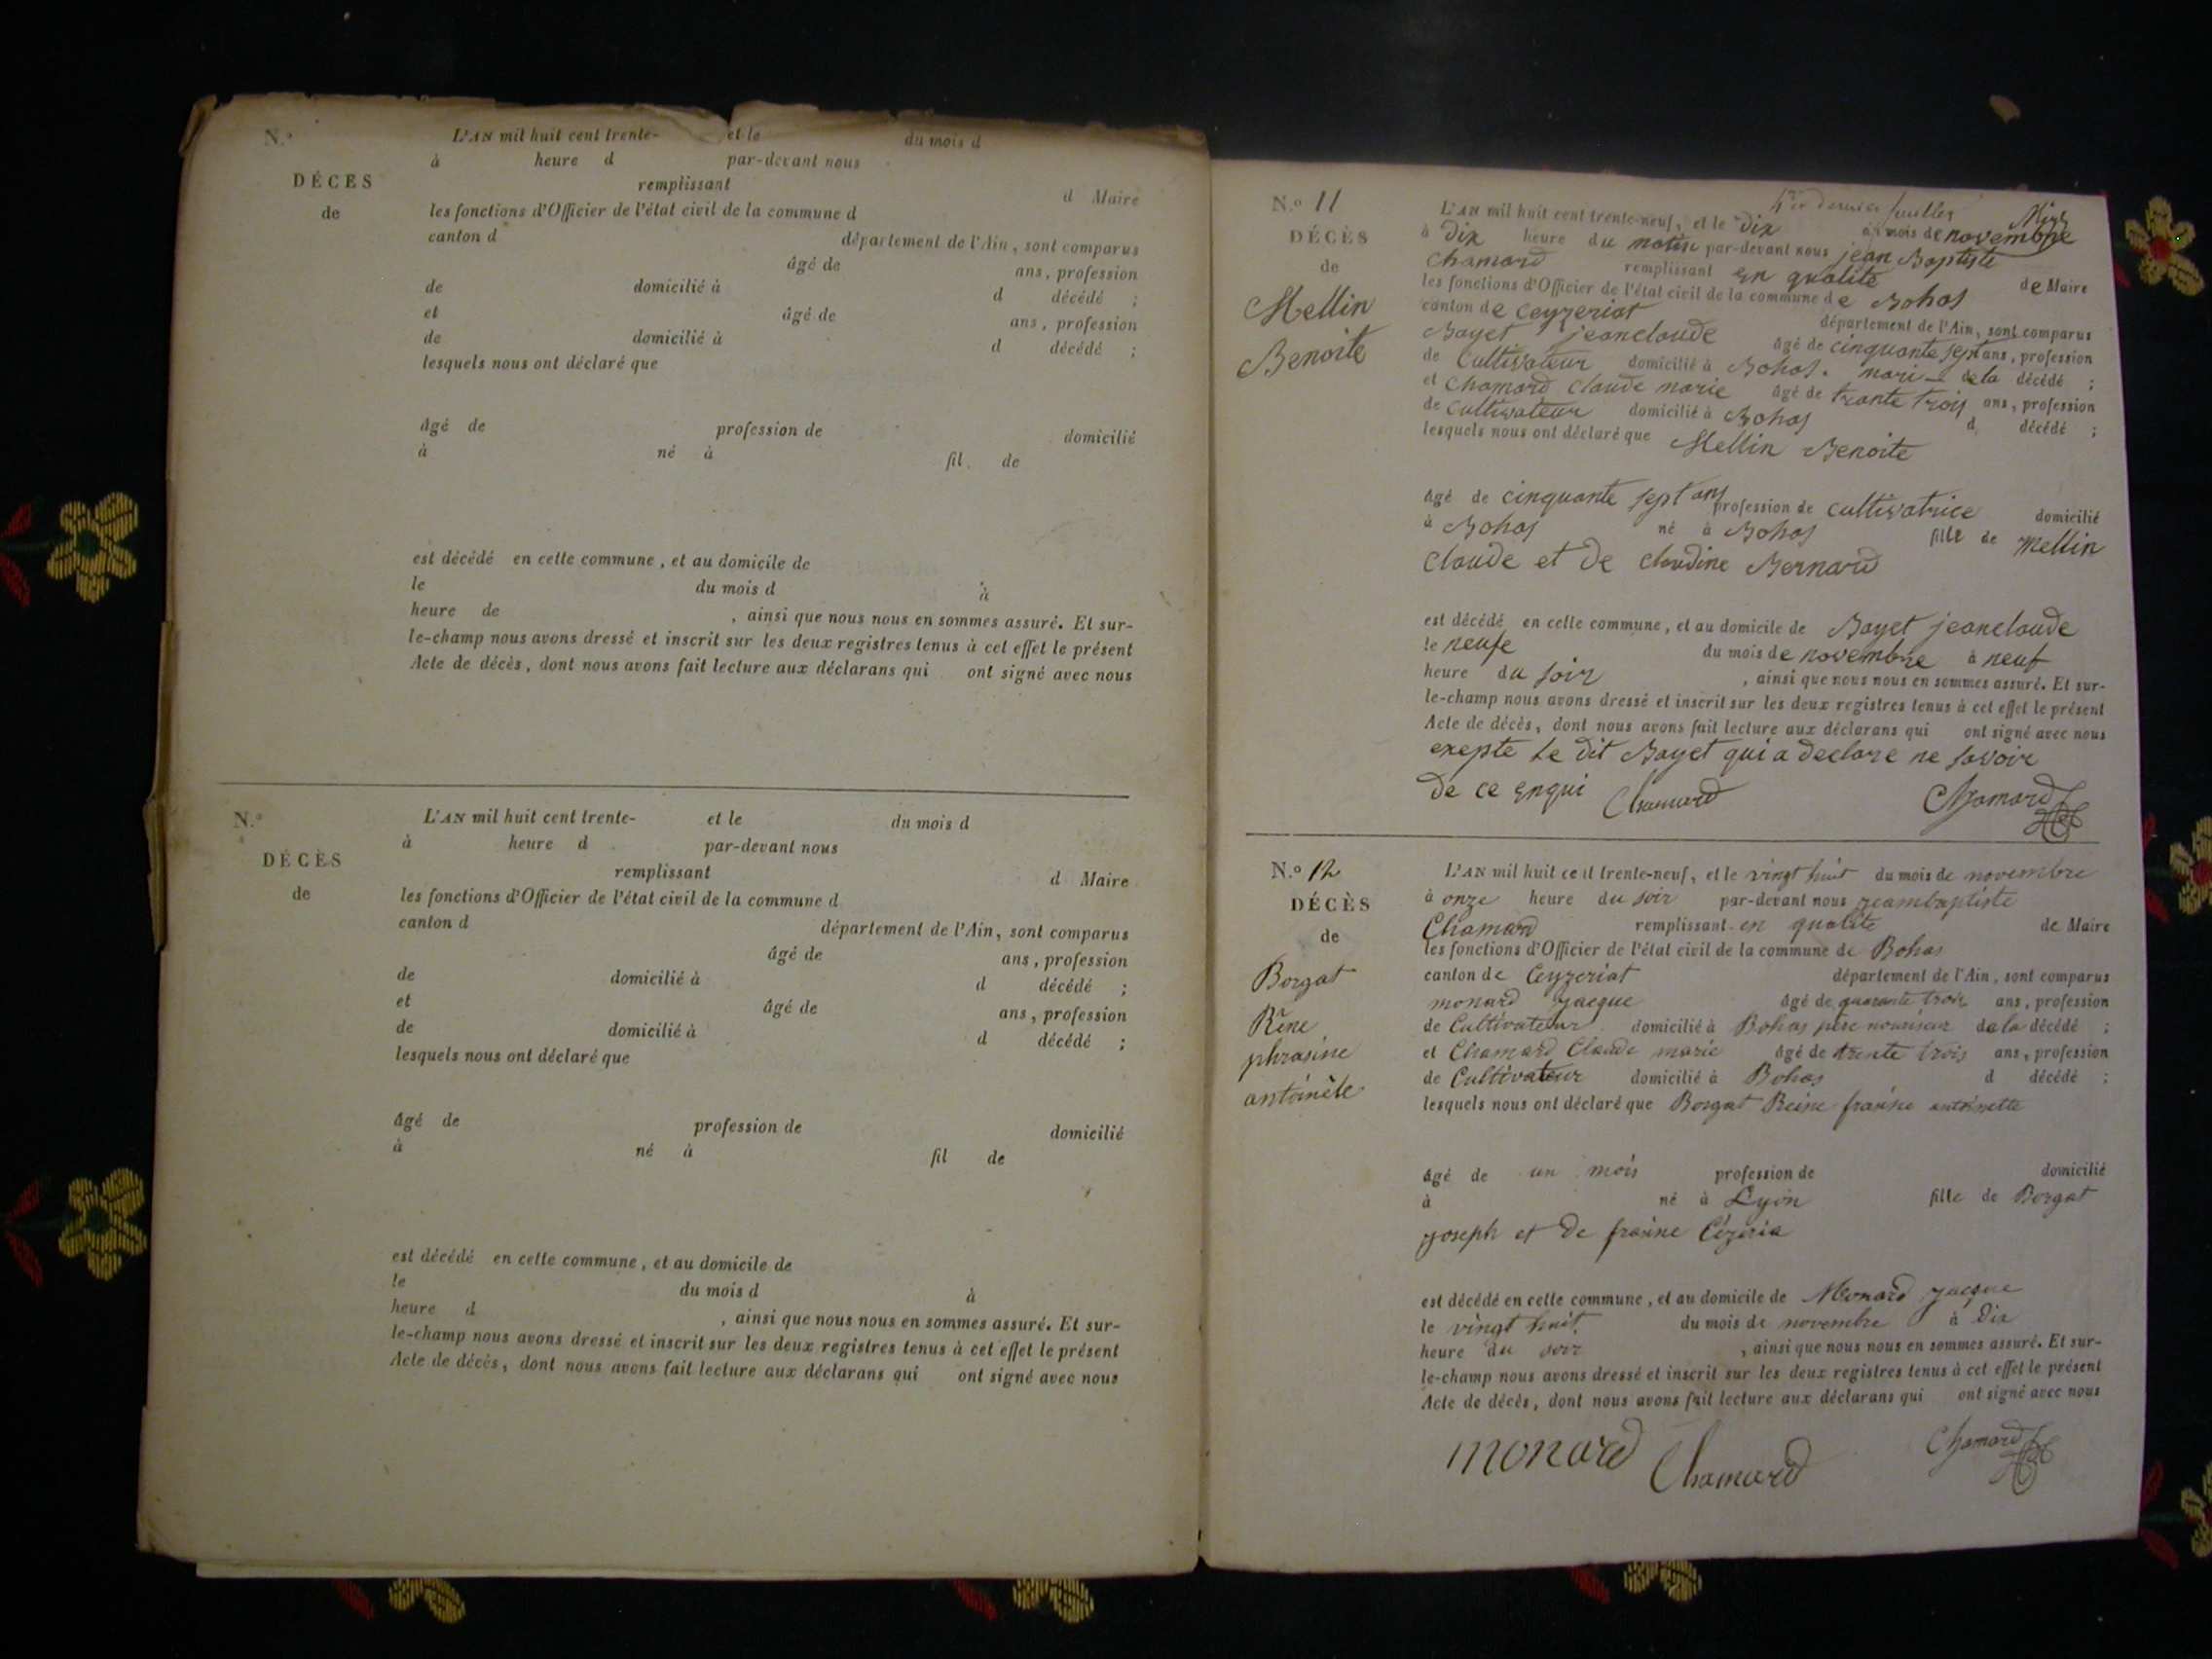 N.º L'AN mil huit cent trente- et le du mois d
à heure d par-devant nous
DÉCÈS remplissant d Maire
de les fonctions d'Officier de l'état civil de la commune d
canton d département de l'Ain, sont comparus
âgé de ans, profession
de domicilié à d décédé ;
et âgé de ans, profession
de domicilié à d décédé ;
lesquels nous ont déclaré que
âgé de profession de domicilié
à né à fil de
est décédé en cette commune, et au domicile de
le du mois d à
heure de , ainsi que nous nous en sommes assuré. Et sur-
le-champ nous avons dressé et inscrit sur les deux registres tenus à cet effet le présent
Acte de décès, dont nous avons fait lecture aux déclarans qui ont signé avec nous
N.º L'AN mil huit cent trente- et le du mois d
à heure d par-devant nous
DÉCÈS remplissant d Maire
de les fonctions d'Officier de l'état civil de la commune d
canton d département de l'Ain, sont comparus
âgé de ans, profession
de domicilié à d décédé ;
et âgé de ans, profession
de domicilié à d décédé ;
lesquels nous ont déclaré que
âgé de profession de domicilié
à né à fil de
est décédé en cette commune, et au domicile de
le du mois d à
heure d , ainsi que nous nous en sommes assuré. Et sur-
le-champ nous avons dressé et inscrit sur les deux registres tenus à cet effet le présent
Acte de décès, dont nous avons fait lecture aux déclarans qui ont signé avec nous
feuilles
N.º 11 L'AN mil huit cent trente-neuf, et le dix du mois de novembre
DÉCÈS à dix heure du matin par-devant nous jean Baptiste
de chamard remplissant en qualité de Maire
les fonctions d'Officier de l'état civil de la commune de Bohas
Mellin canton de ceyzeriat département de l'Ain, sont comparus
Benoite Bayet jeanclaude âgé de cinquante sept ans, profession
de Cultivateur domicilié à Bohas. mari de la décédé ;
et chamard claude marie âgé de trante trois ans, profession
de cultivateur domicilié à Bohas d décédé ;
lesquels nous ont déclaré que Mellin Benoite
âgé de cinquante sept ans profession de cultivatrice domicilié
à Bohas né à Bohas fille de Mellin
claude et de claudine Bernard
est décédé en cette commune, et au domicile de Bayet jeanclaude
le neufe du mois de novembre à neuf
heure du soir , ainsi que nous nous en sommes assuré. Et sur-
le-champ nous avons dressé et inscrit sur les deux registres tenus à cet effet le présent
Acte de décès, dont nous avons fait lecture aux déclarans qui ont signé avec nous
exepte le dit Bayet qui a declare ne savoir
de ce enqui Chamard Chamard
N.º 12 L'AN mil huit cent trente-neuf, et le vingt huit du mois de novembre
DÉCÈS à onze heure du soir par-devant nous jeambaptiste
de Chamard remplissant en qualité de Maire
les fonctions d'Officier de l'état civil de la commune de Bohas
Borgat canton de Ceyzeriat département de l'Ain, sont comparus
monard jacque âgé de quarante trois ans, profession
Rêne de Cultivateur domicilié à Bohas père nourisieur de la décédé ;
phrasine et Chamard Claude marie âgé de trente trois ans, profession
antoinète de Cultivateur domicilié à Bohas d décédé ;
lesquels nous ont déclaré que Borgat Reine frasine antoinette
âgé de un mois profession de domicilié
à né à Lyon fille de Borgat
joseph et de frasine Cézeria
est décédé en cette commune, et au domicile de Monard jacque
le vingt huit. du mois de novembre à Dix
heure du soir , ainsi que nous nous en sommes assuré. Et sur-
le-champ nous avons dressé et inscrit sur les deux registres tenus à cet effet le présent
Acte de décès, dont nous avons fait lecture aux déclarans qui ont signé avec nous
monard Chamard Chamard